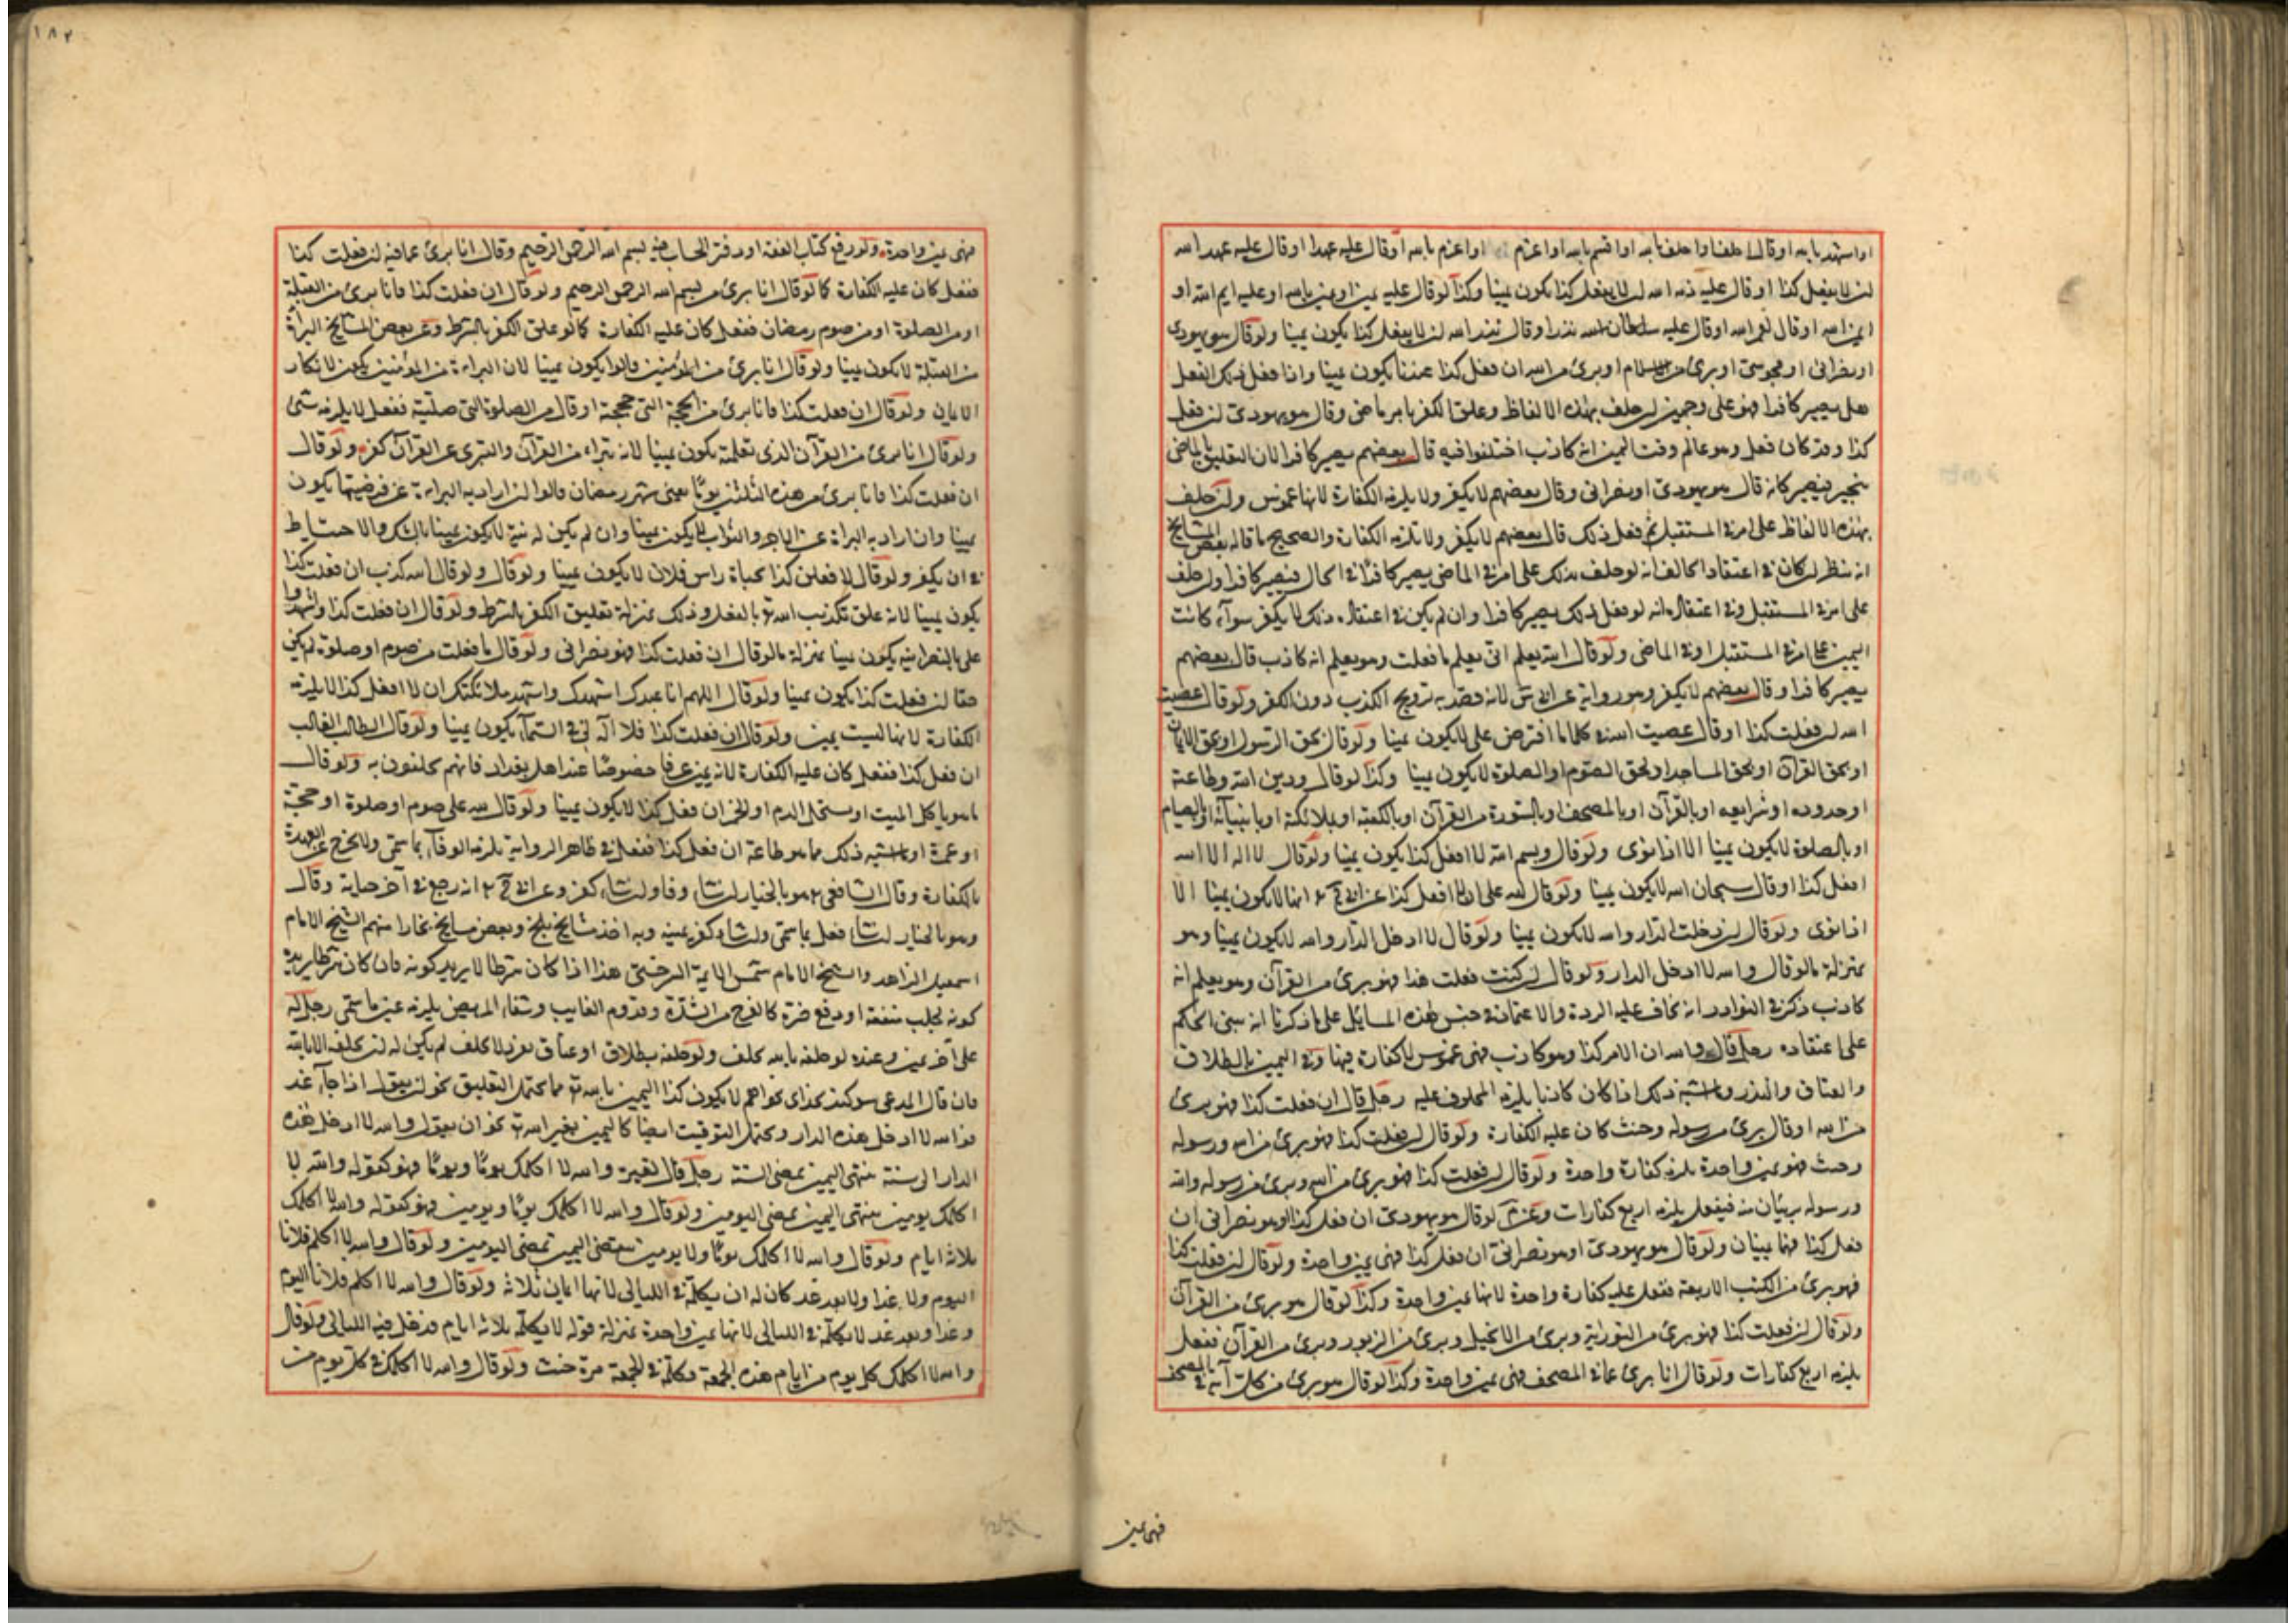 او اشهد بالله او قال احلف او احلف بالله او اقسم بالله او اعزم او اعزم بالله او قال عليه عهد او قال عليه عهد الله
لن لا يفعل كذا او قال عليه ذمة الله لن لا يفعل كذا يكون يمينا وكذا لو قال عليه يمين او يمين بالله او عليه ايم الله او
ايمن الله او قال لعمر الله او قال عليه سلطان الله نذر او قال نذر الله لن لا يفعل كذا يكون يمينا ولو قال هو يهودى
او نصرانى او مجوسى او برئ من الاسلام او برئ من الله ان فعل كذا عندنا يكون يمينا واذا فعل ذلك الفعل
هل يصير كافرا فهو على وجهين لن حلف بهذه الالفاظ وعلق الكفر بامر ماضى وقال هو يهودى لن فعل
كذا وقد كان فعل وهو عالم وقت اليمين انه كاذب اختلفوا فيه قال بعضهم يصير كافرا لان التعليق بالماضى
تنجيز فيصير كانه قال هو يهودى او نصرانى وقال بعضهم لا يكفر ولا يلزمه الكفارة لانها غموس ولن حلف
بهذه الالفاظ على امر فى المستقبل ثم فعل ذلك قال بعضهم لا يكفر ولا تلزمه الكفارة والصحيح ما قاله بعض المشايخ
انه ينظر لن كان فى اعتقاد الحالف انه لو حلف بذلك على امر فى الماضى يصير كافرا فى الحال فيصير كافرا ولن حلف
على امر فى المستقبل وفى اعتقاده انه لو فعل ذلك يصير كافرا وان لم يكن فى اعتقاده ذلك لا يكفر سوآء كانت
اليمين على امر فى المستقبل او فى الماضى ولو قال الله يعلم انى يعلم ما فعلت وهو يعلم انه كاذب قال بعضهم
يصير كافرا وقال بعضهم لا يكفر وهو رواية عن ابى س لانه قصد به ترويج الكذب دون الكفر ولو قال عصيت
الله لن فعلت كذا او قال عصيت الله فى كلما افترض على لا يكون يمينا ولو قال بحق الرسول او بحق الايمان
او بحق القرآن او بحق المساجد او بحق الصوم او الصلوة لا يكون يمينا وكذا لو قال ودين الله وطاعة
او حدوده او شرايعه او بالقرآن او بالمصحف او بالسورة من القرآن او بالكعبة او بملائكة او بانبيائه او بالصيام
او بالصلوة لا يكون يمينا الا اذا نوى ولو قال وبسم الله لا افعل كذا يكون يمينا ولو قال لا اله الا الله
افعل كذا او قال سبحان الله لا يكون يمينا ولو قال لله على ان لا افعل كذا عن ابى ح انها لا يكون يمينا الا
اذا نوى ولو قال لن دخلت الدار والله لا يكون يمينا ولو قال لا ادخل الدار والله لا يكون يمينا وهو
بمنزلة ما لو قال والله لا ادخل الدار ولو قال لن كنت فعلت هذا فهو برئ من القرآن وهو يعلم انه
كاذب ذكر فى النوادر انه يخاف عليه الردة والاعتماد فى جنس هذه المسائل على ما ذكرنا انه يبنى الحكم
على اعتقاده رجل قال والله ان الامر كذا وهو كاذب فهى غموس لا كفارة فيها وفى اليمين بالطلاق
والعتاق والنذر وما اشبه ذلك اذا كان كاذبا يلزمه المحلوف عليه رجل قال ان فعلت كذا فهو برئ
من الله او قال برئ من رسوله وحنث كان عليه الكفارة ولو قال لن فعلت كذا فهو برئ من الله ورسوله
وحنث فهو يمين واحدة يلزمه كفارة واحدة ولو قال لن فعلت كذا فهو برئ من الله وبرئ من رسوله والله
ورسوله بريئان منه فيفعل يلزمه اربع كفارات وعن م لو قال هو يهودى ان فعل كذا وهو نصرانى ان
فعل كذا فهما يمينان ولو قال هو يهودى او هو نصرانى ان فعل كذا فهى يمين واحدة ولو قال لن فعلت كذا
فهو برئ من الكتب الاربعة ففعل عليه كفارة واحدة لانها يمين واحدة وكذا لو قال هو برئ من القرآن
ولو قال لن فعلت كذا فهو برئ من التورية وبرئ من الانجيل وبرئ من الزبور وبرئ من القرآن ففعل
يلزمه اربع كفارات ولو قال انا برئ مما فى المصحف فهى يمين واحدة وكذا لو قال هو برئ من كل آية فى المصحف
فهى يمين
١٨٢
فهى يمين واحدة ولو رفع كتاب الفقه او دفتر الحساب فيه بسم الله الرحمن الرحيم وقال انا برئ مما فيه لن فعلت كذا
ففعل كان عليه الكفارة كما لو قال انا برئ من بسم الله الرحمن الرحيم ولو قال ان فعلت كذا فانا برئ من القبلة
او من الصلوة او من صوم رمضان ففعل كان عليه الكفارة كما لو علق الكفر بالشرط وعن بعض المشايخ البرآة
من القبلة لا يكون يمينا ولو قال انا برئ من المؤمنين قالوا يكون يمينا لان البراءة من المؤمنين يكون لانكار
الايمان ولو قال ان فعلت كذا فانا برئ من الحجة التى حججت او قال من الصلوة التى صليت ففعل لا يلزمه شئ
ولو قال انا برئ من القرآن الذى تعلمته يكون يمينا لانه تبراء من القرآن والتبرى عن القرآن كفر ولو قال
ان فعلت كذا فانا برئ من هذه الثلثين يوما يعنى شهر رمضان قالوا لن اراد به البراءة عن فرضيتها يكون
يمينا وان اراد به البراة عن الاجر والثواب لا يكون يمينا وان لم يكن له نية لا يكون يمينا بالشك والاحتياط
فى ان يكفر ولو قال لا فعلن كذا بحياة راس فلان لا يكون يمينا ولو قال ولو قال الله كذب ان فعلت كذا
يكون يمينا لانه علق تكذيب الله تع بالفعل وذلك بمنزلة تعليق الكفر بالشرط ولو قال ان فعلت كذا واشهدوا
على بالنصرانية يكون يمينا بمنزلة ما لو قال ان فعلت كذا فهو نصرانى ولو قال ما فعلت من صوم او صلوة لم يكن
حقا لن فعلت كذا يكون يمينا ولو قال اللهم انا عبدك اشهدك واشهد ملائكتك ان لا افعل كذا لا يلزمه
الكفارة لانها ليست بيمين ولو قال ان فعلت كذا فلا آله لى فى السمآء يكون يمينا ولو قال الطالب الغالب
ان فعل كذا ففعل كان عليه الكفارة لانه يمين عرفا خصوصا عند اهل بغداد فانهم يحلفون به ولو قال
ما هو يأكل الميت او يستحل الدم او الخمر ان فعل كذا لا يكون يمينا ولو قال لله على صوم او صلوة او حجة
او عمرة او ما اشبه ذلك مما هو طاعة ان فعل كذا ففعل فى ظاهر الرواية يلزمه الوفآء بما سمى ولا يخرج عن العهدة
بالكفارة وقال الشافعى هو بالخيار لن شاء وفا ولن شاء كفر وعن ابى ح انه رجع فى آخر حياته وقال
وهو بالخيار لن شاء فعل بما سمى ولن شاء كفر يمينه وبه اخذ مشايخ بلخ وبعض مشايخ بخارا منهم الشيخ الامام
اسمعيل الزاهد والشيخ الامام شمس الايمة السرخسى هذا اذا كان شرطا لا يريد كونه فان كان شرطا يريد
كونه لجلب منفعة او دفع ضرة كالفرج من الشدة وقدوم الغايب وشفاء المريض يلزمه عين ما سمى رجل له
على آخر يمين وعنده لو حلفه بالله يحلف ولو حلفه بطلاق او عتاق لا يحلف لم يكن له لن يحلفه الا بالله
فان قال المدعى سوكند بخداى بخواهم لا يكون كذا اليمين بالله تع مما يحتمل التعليق نحو لن يقول اذا جآء غد
فوالله لا ادخل هذه الدار ويحتمل التوقيت ايضا كاليمين بغير الله تع نحو ان يقول والله لا ادخل هذه
الدار الى سنة منتهى اليمين بمضى السنة رجل قال لغيره والله لا اكلمك يوما ويوما فهو كقوله والله لا
اكلمك يومين ينتهى اليمين بمضى اليومين ولو قال والله لا اكلمك يوما ويومين فهو كقوله والله لا اكلمك
ثلاثة ايام ولو قال والله لا اكلمك يوما ولا يومين ينقضى اليمين بمضى اليومين ولو قال والله لا اكلم فلانا
اليوم ولا غدا ولا بعد غد كان له ان يكلمه فى الليالى لانها ايمان ثلاثة ولو قال والله لا اكلم فلانا اليوم
وغدا وبعد غد لا يكلمه فى الليالى لانها يمين واحدة بمنزلة قوله لا يكلمه ثلاثة ايام فدخل فيه الليالى ولو قال
والله لا اكلمك كل يوم من ايام هذه الجمعة فكلمه فى الجمعة مرة حنث ولو قال والله لا اكلمك فى كل يوم من